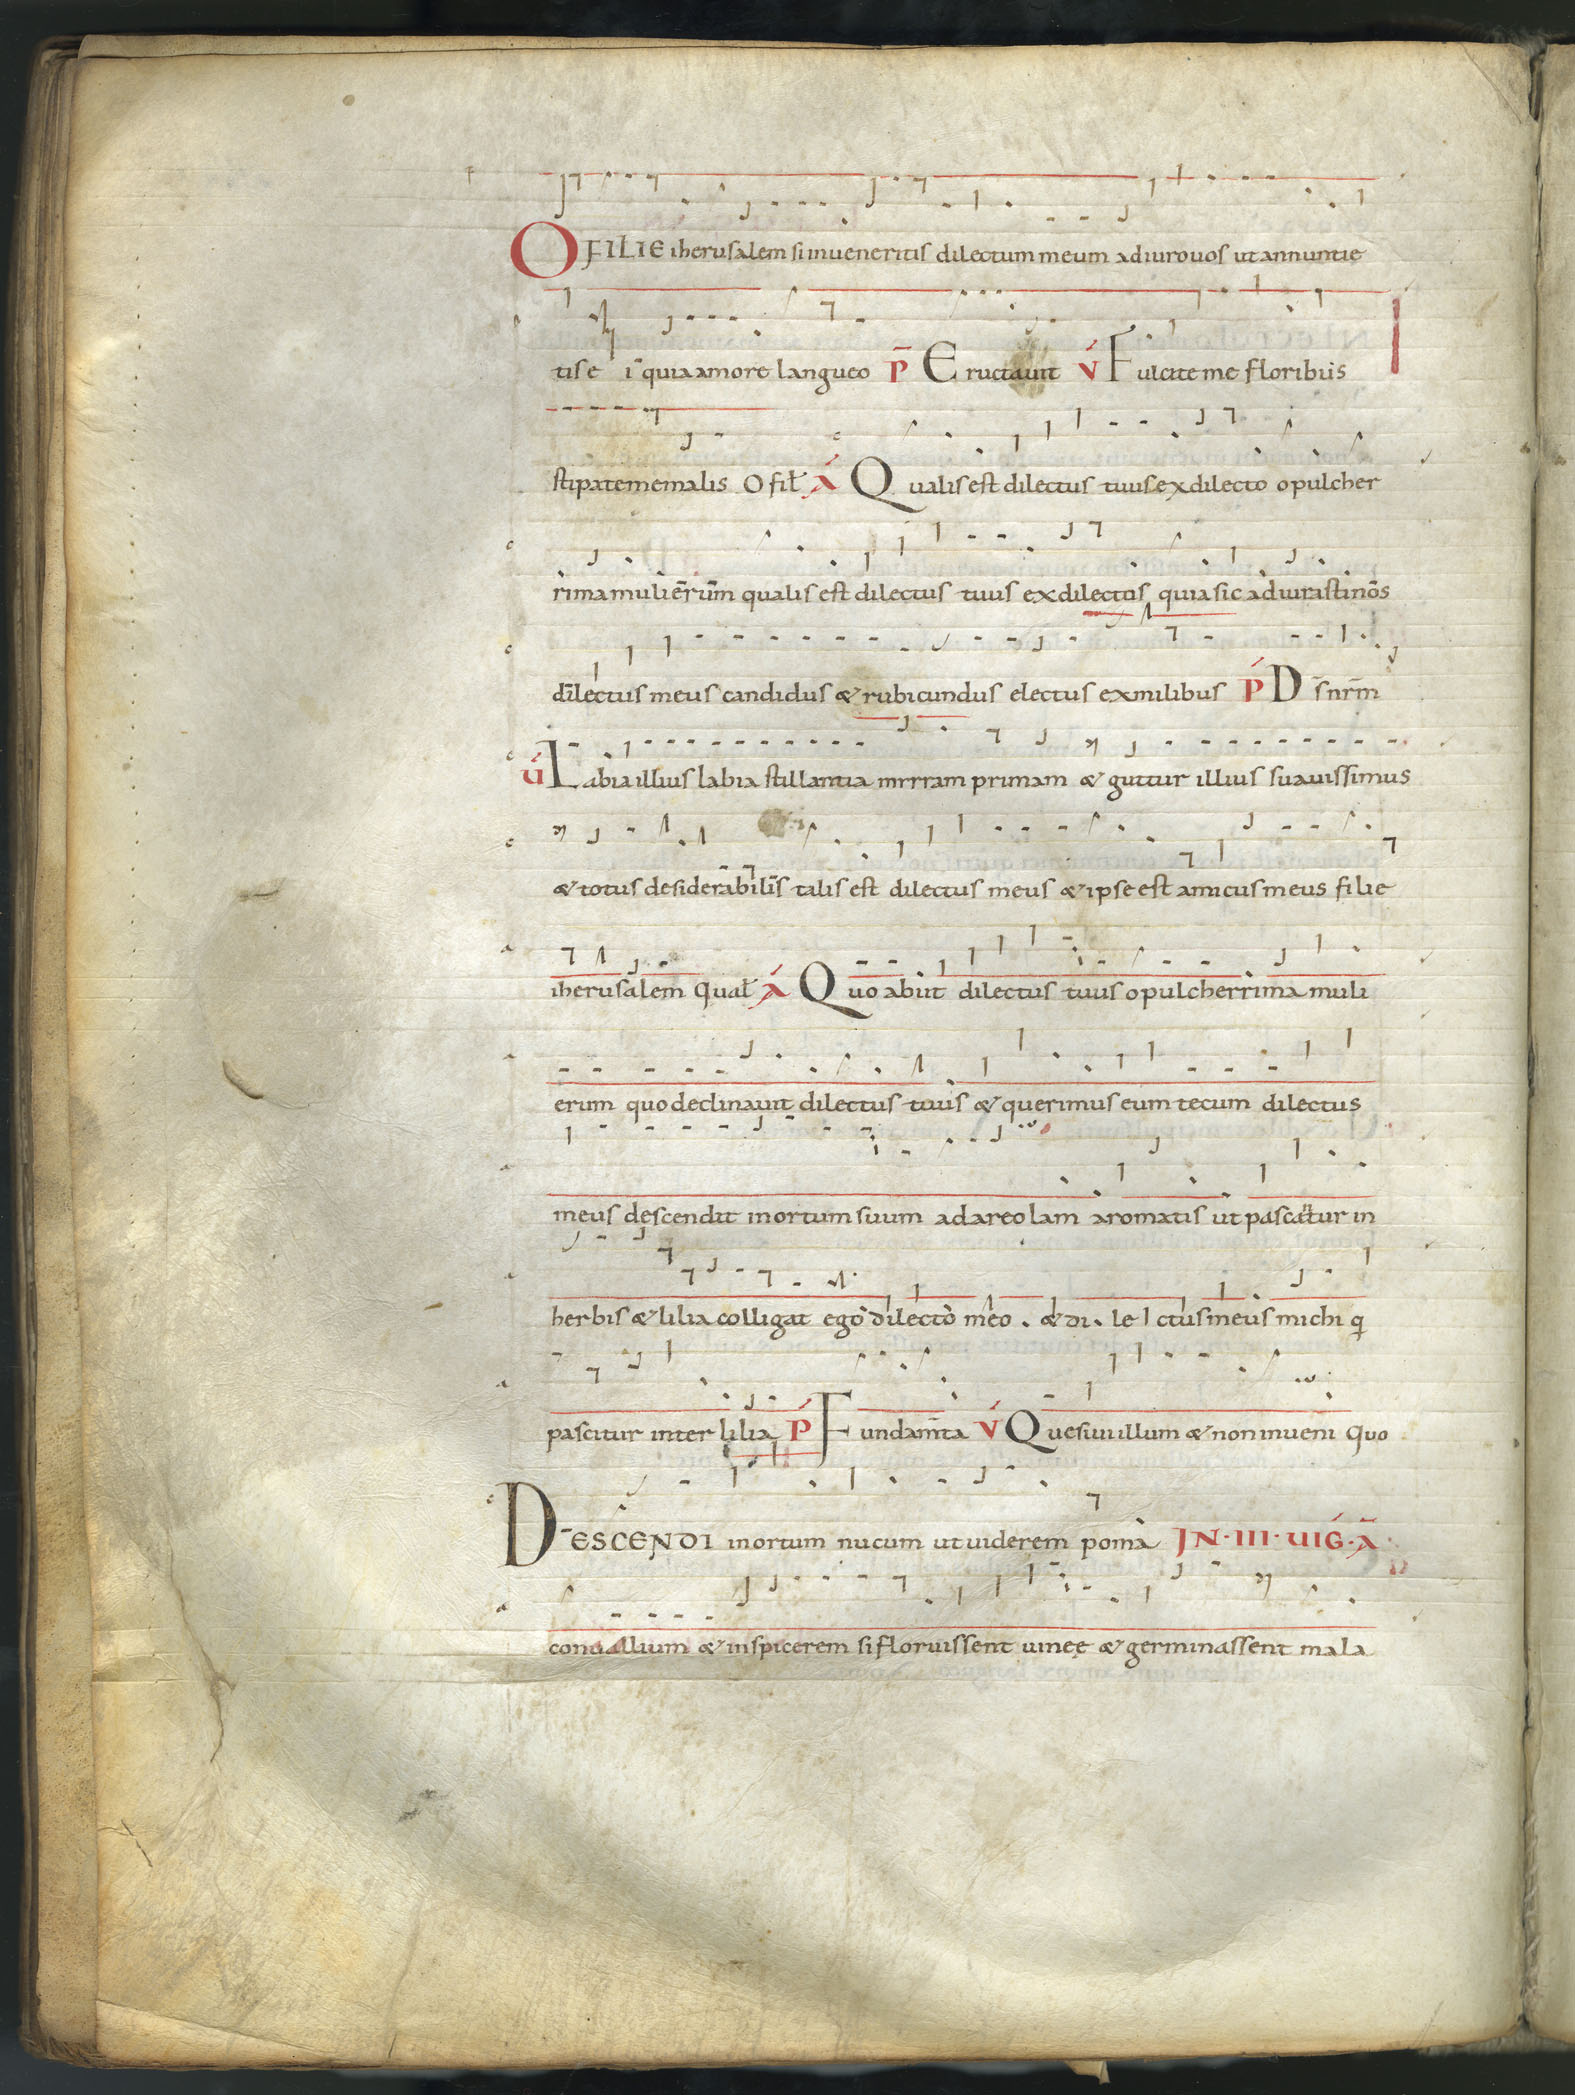 O FILIE iherusalem si inueneritis dilectum meum adiuro uos ut annuntie
tis e i quia amore langueo P̄ Eructauit V́ Fulcite me floribus
stipate me malis O fił Á Qualis est dilectus tuus ex dilecto o pulcher
rima mulierum qualis est dilectus tuus ex dilectos quia sic adiurasti nos
dilectus meus candidus & rubicundus electus ex milibus Ṕ D s nrm̄
Ú Labia illius labia stillantia mrrram primam & guttur illius suauissimus
& totus desiderabilis talis est dilectus meus & ipse est amicus meus filie
iherusalem Quał Á Quo abiit dilectus tuus o pulcherrima muli
erum quo declinauit dilectus tuus & querimus eum tecum dilectus
meus descendit in ortum suum ad areolam aromatis ut pascatur in
herbis & lilia colligat ego dilecto meo . & di . le l ctus meus michi q
pascitur inter lilia Ṕ Fundam̄ta V́ Quesiui illum & non inueni Quo
DESCENDI in ortum nucum ut uiderem poma IN · III · UIǴ · Ā
conuallium & inspicerem si floruissent uineę & germinassent mala